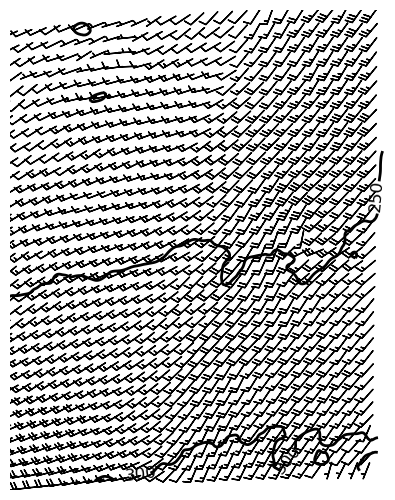 250
300